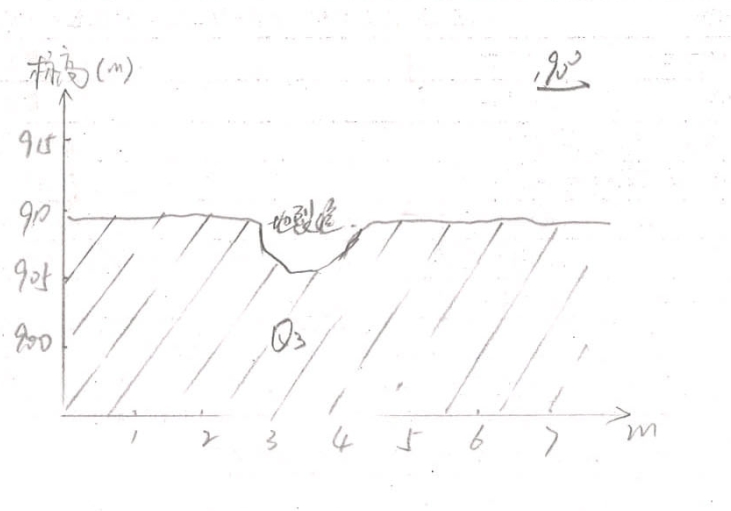 标高(m)
90°
915
910
地裂缝
905
900
Q3
1 2 3 4 5 6 7 m